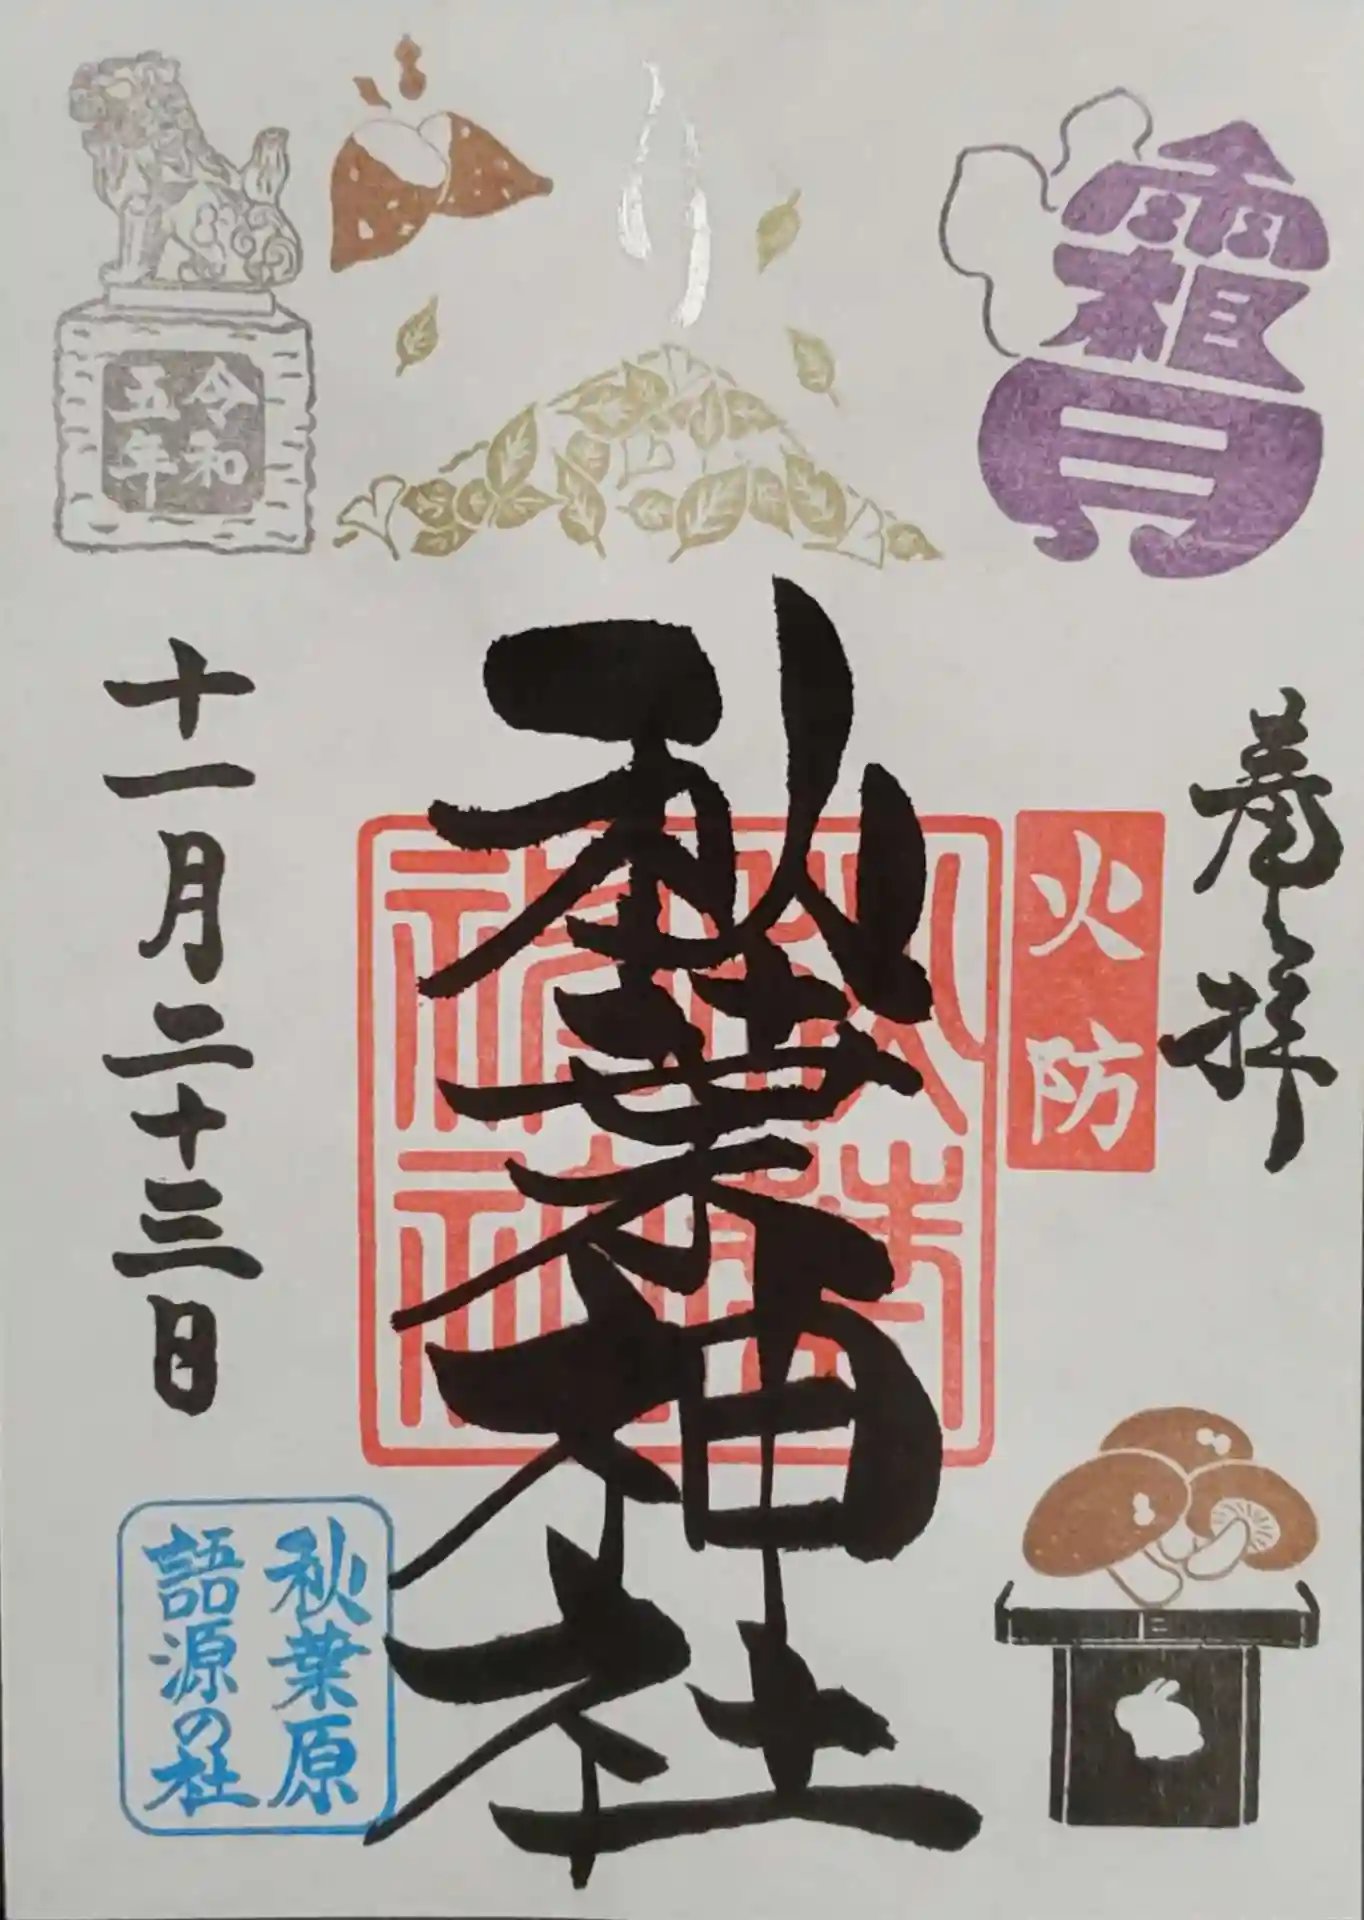 霜月
奉拝
火防
秋葉神社
秋葉神社
令和
五年
十一月二十三日
秋葉原
語源の社